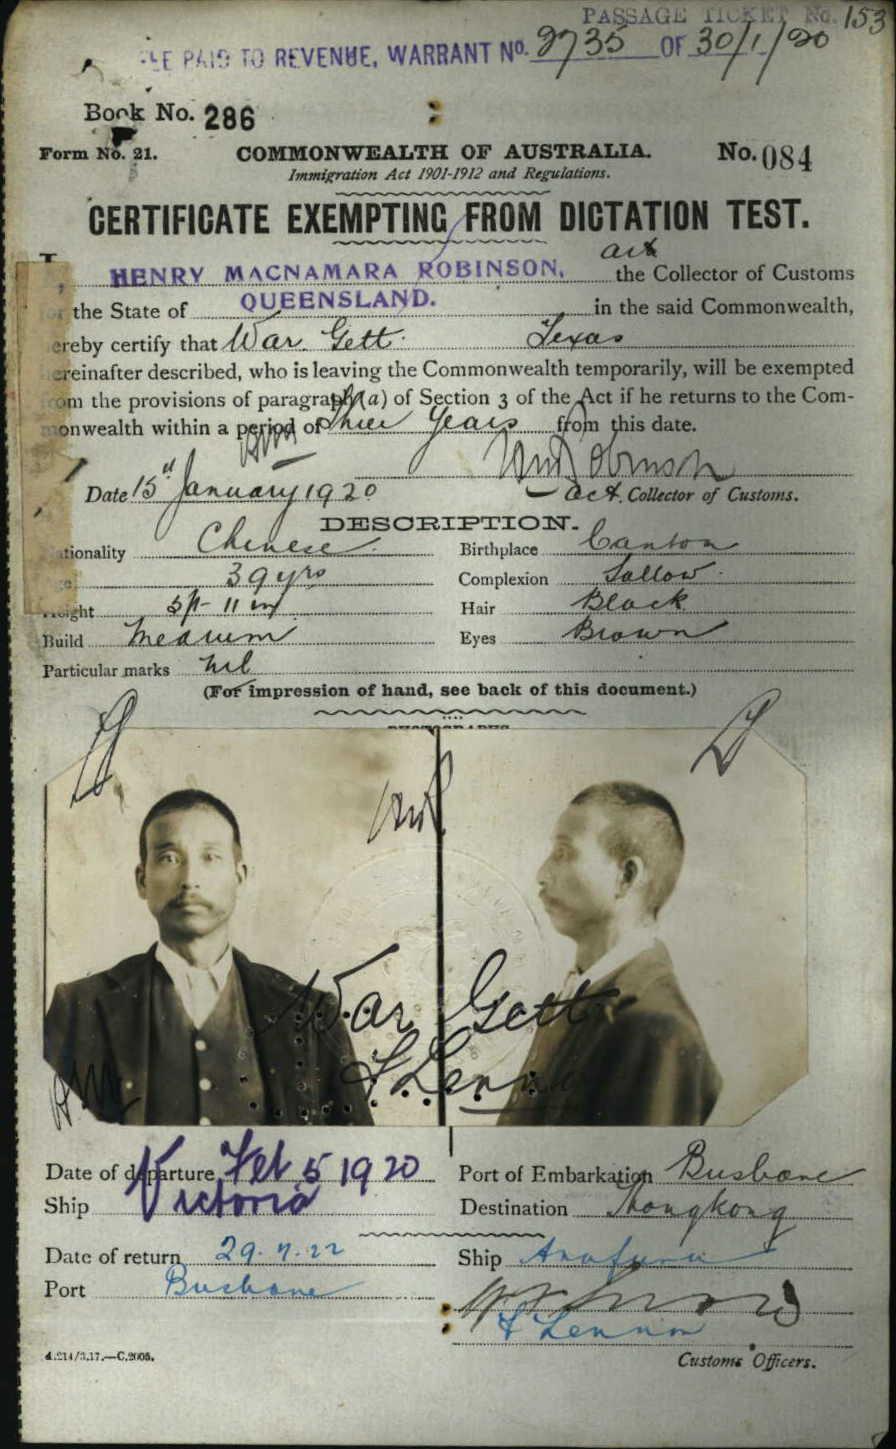 PASSAGE TICKET No. 153
PAID TO REVENUE, WARRANT No. 2735 OF 30/1/20
Book No. 286
Form No. 21. COMMONWEALTH OF AUSTRALIA. No. 084
Immigration Act 1901-1912 and Regulations.
CERTIFICATE EXEMPTING FROM DICTATION TEST.
I, HENRY MACNAMARA ROBINSON, act the Collector of Customs
the State of QUEENSLAND. in the said Commonwealth,
ereby certify that War Gett Texas
ereinafter described, who is leaving the Commonwealth temporarily, will be exempted
om the provisions of paragraph (a) of Section 3 of the Act if he returns to the Com-
onwealth within a period of Three Years from this date.
HMR
Date 15th January 1920 act. Collector of Customs.
DESCRIPTION.
ationality Chinese Birthplace Canton
39 yrs Complexion Sallow
ight 5ft- 11 in Hair Black
Build Medium Eyes Brown
Particular marks nil
(For impression of hand, see back of this document.)
War Gett
F Lennon
Date of departure Feb 5 1920 Port of Embarkation Brisbane
Ship Victoria Destination Hongkong
Date of return 29.7.22 Ship Arafura
Port Brisbane
F Lennon
4.214/3.17.—C.2005. Customs Officers.